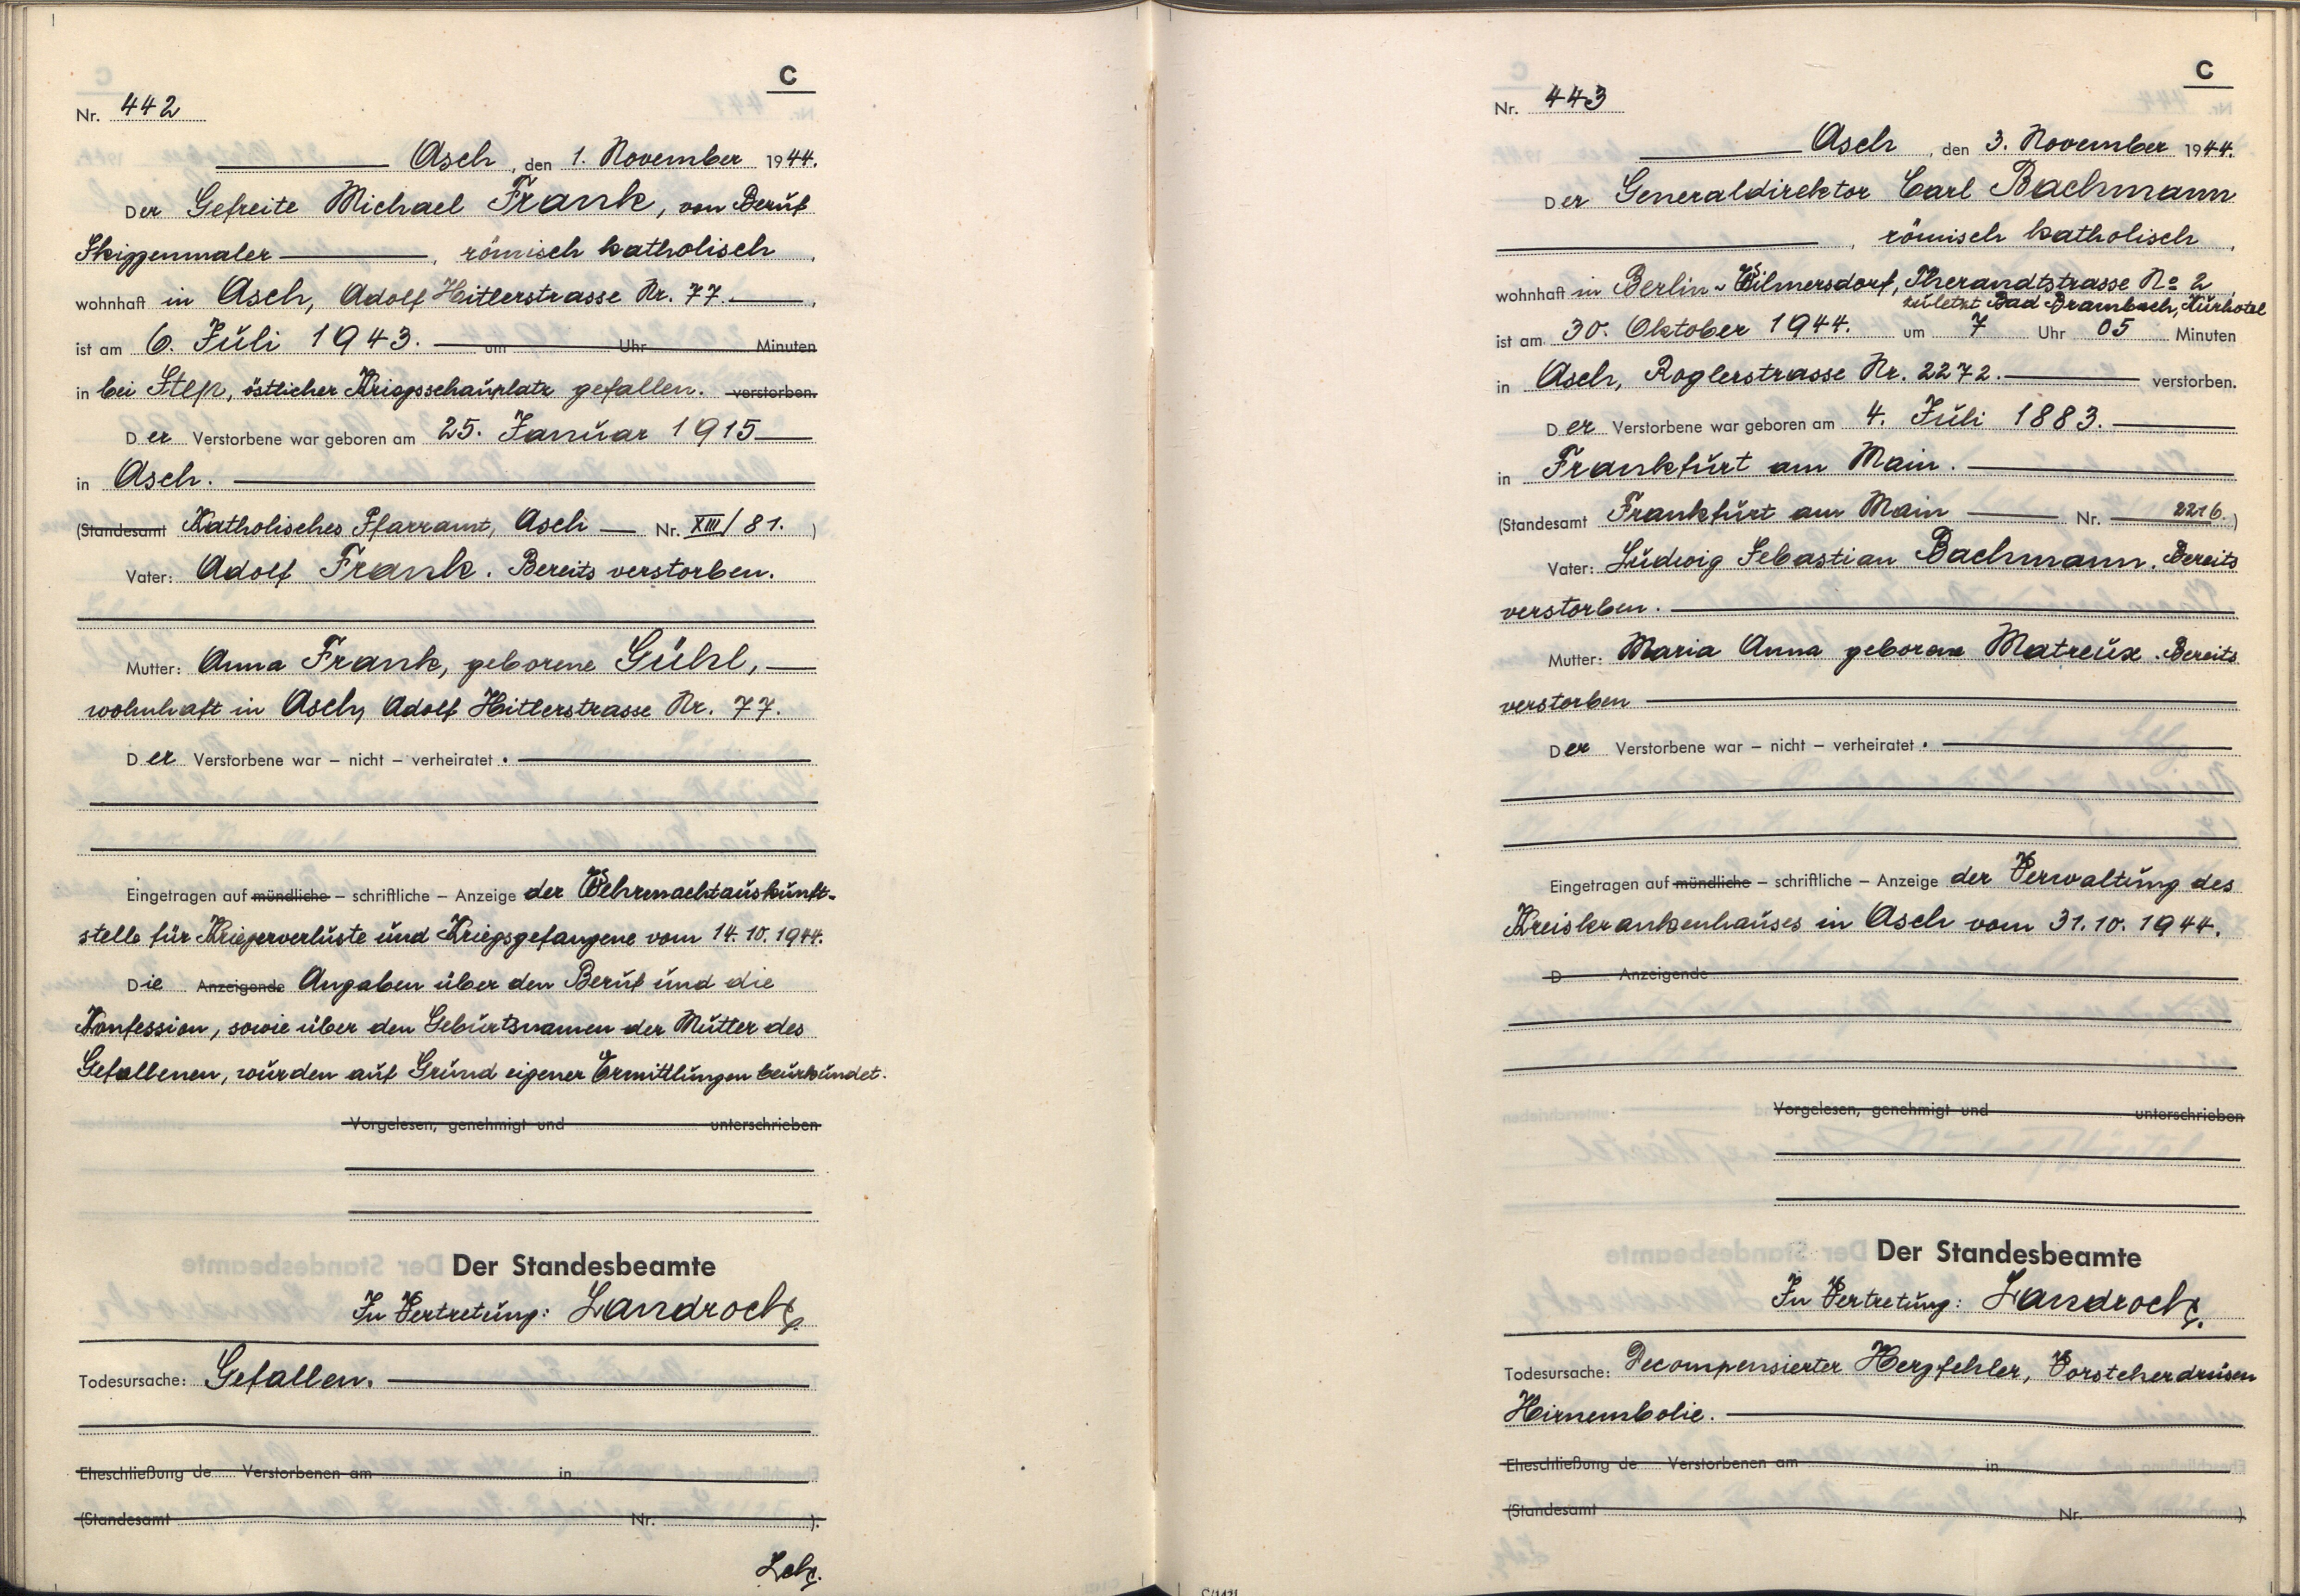 C
Nr. 442
Asch, den 1. November 1944.
Der Gefreite Michael Frank, von Beruf
Skizzenmaler, römisch katholisch,
wohnhaft in Asch, Adolf Hitlerstrasse Nr. 77.,
ist am 6. Juli 1943. um Uhr Minuten
in bei Step, östlicher Kriegsschauplatz gefallen. verstorben.
Der Verstorbene war geboren am 25. Januar 1915
in Asch.
(Standesamt Katholisches Pfarramt, Asch Nr. XIII/81.)
Vater: Adolf Frank. Bereits verstorben.
Mutter: Anna Frank, geborene Gühl,
wohnhaft in Asch, Adolf Hitlerstrasse Nr. 77.
Der Verstorbene war – nicht – verheiratet.
Eingetragen auf mündliche – schriftliche – Anzeige der Wehrmachtauskunft-
stelle für Kriegerverluste und Kriegsgefangene vom 14.10.1944.
Die Anzeigende Angaben über den Beruf und die
Konfession, sowie über den Geburtsnamen der Mutter des
Gefallenen, wurden auf Grund eigener Ermittlungen beurkundet.
Vorgelesen, genehmigt und unterschrieben
Der Standesbeamte
In Vertretung: Landrock
Todesursache: Gefallen.
Eheschließung de Verstorbenen am in
(Standesamt Nr. ).
C
Nr. 443
Asch, den 3. November 1944.
Der Generaldirektor Carl Bachmann
, römisch katholisch,
wohnhaft in Berlin-Wilmersdorf, Therandtstrasse No 2,
zuletzt Bad Brambach, Kurhotel
ist am 30. Oktober 1944. um 7 Uhr 05 Minuten
in Asch, Roglerstrasse Nr. 2272. verstorben.
Der Verstorbene war geboren am 4. Juli 1883.
in Frankfurt am Main.
(Standesamt Frankfurt am Main Nr. 2216.)
Vater: Ludwig Sebastian Bachmann. Bereits
verstorben.
Mutter: Maria Anna geborene Matreux. Bereits
verstorben
Der Verstorbene war – nicht – verheiratet.
Eingetragen auf mündliche – schriftliche – Anzeige der Verwaltung des
Kreiskrankenhauses in Asch vom 31.10.1944.
D Anzeigende
Vorgelesen, genehmigt und unterschrieben
Der Standesbeamte
In Vertretung: Landrock
Todesursache: Decompensierter Herzfehler, Vorsteherdrüsen
Hirnembolie.
Eheschließung de Verstorbenen am in
(Standesamt Nr. )